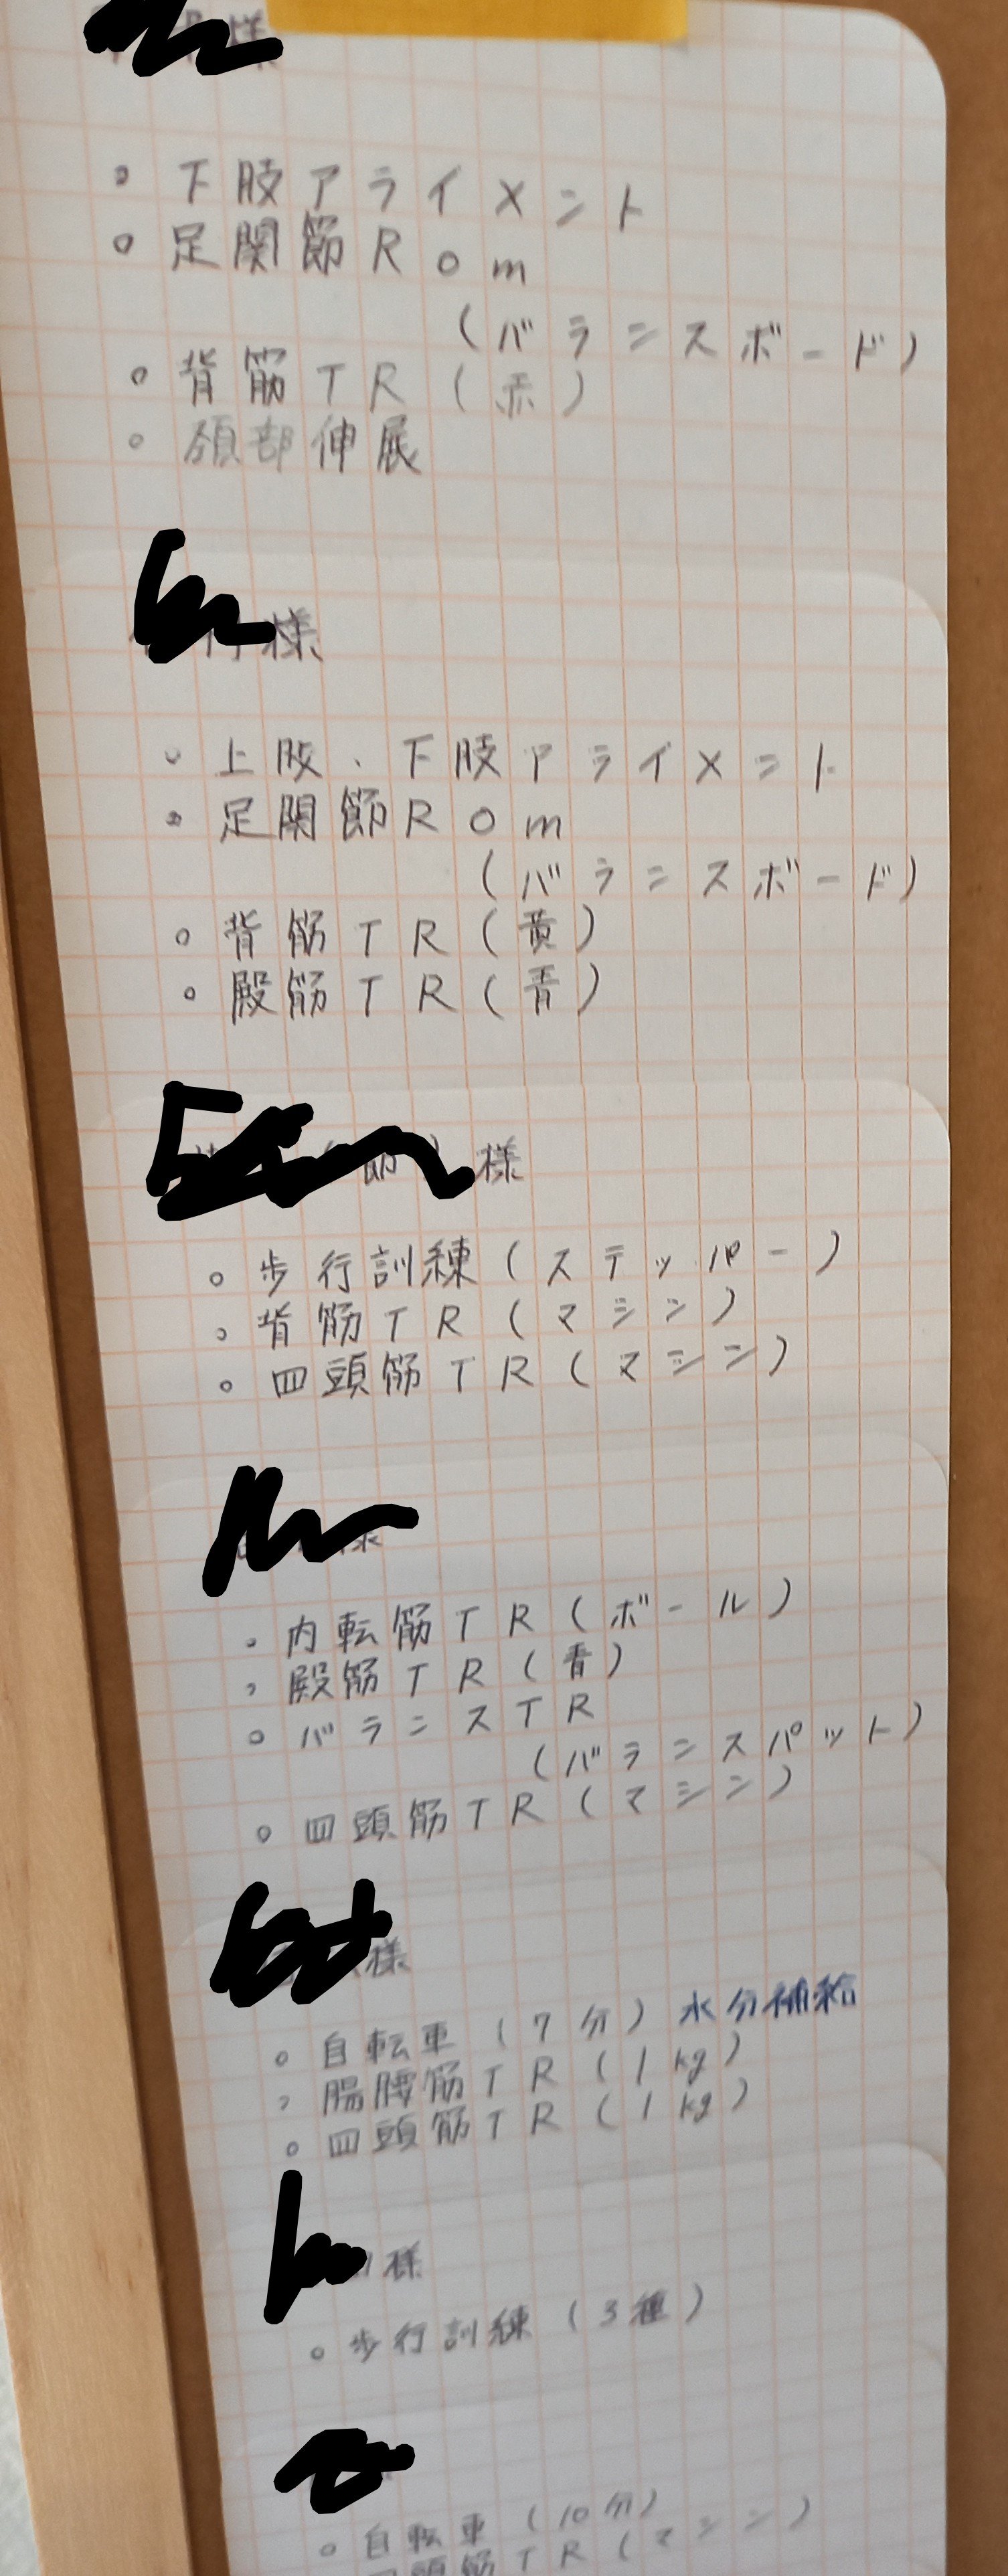 様
。下肢アライメント
。足関節Rom
(バランスボード)
。背筋TR(赤)
。頚部伸展
様
。上肢、下肢アライメント
。足関節Rom
(バランスボード)
。背筋TR(黄)
。殿筋TR(青)
様
。歩行訓練(ステッパー)
。背筋TR(マシン)
。四頭筋TR(マシン)
様
。内転筋TR(ボール)
。殿筋TR(青)
。バランスTR
(バランスパット)
。四頭筋TR(マシン)
様
。自転車(7分)水分補給
。腸腰筋TR(1kg)
。四頭筋TR(1kg)
様
。歩行訓練(3種)
。自転車(10分)
四頭筋TR(マシン)